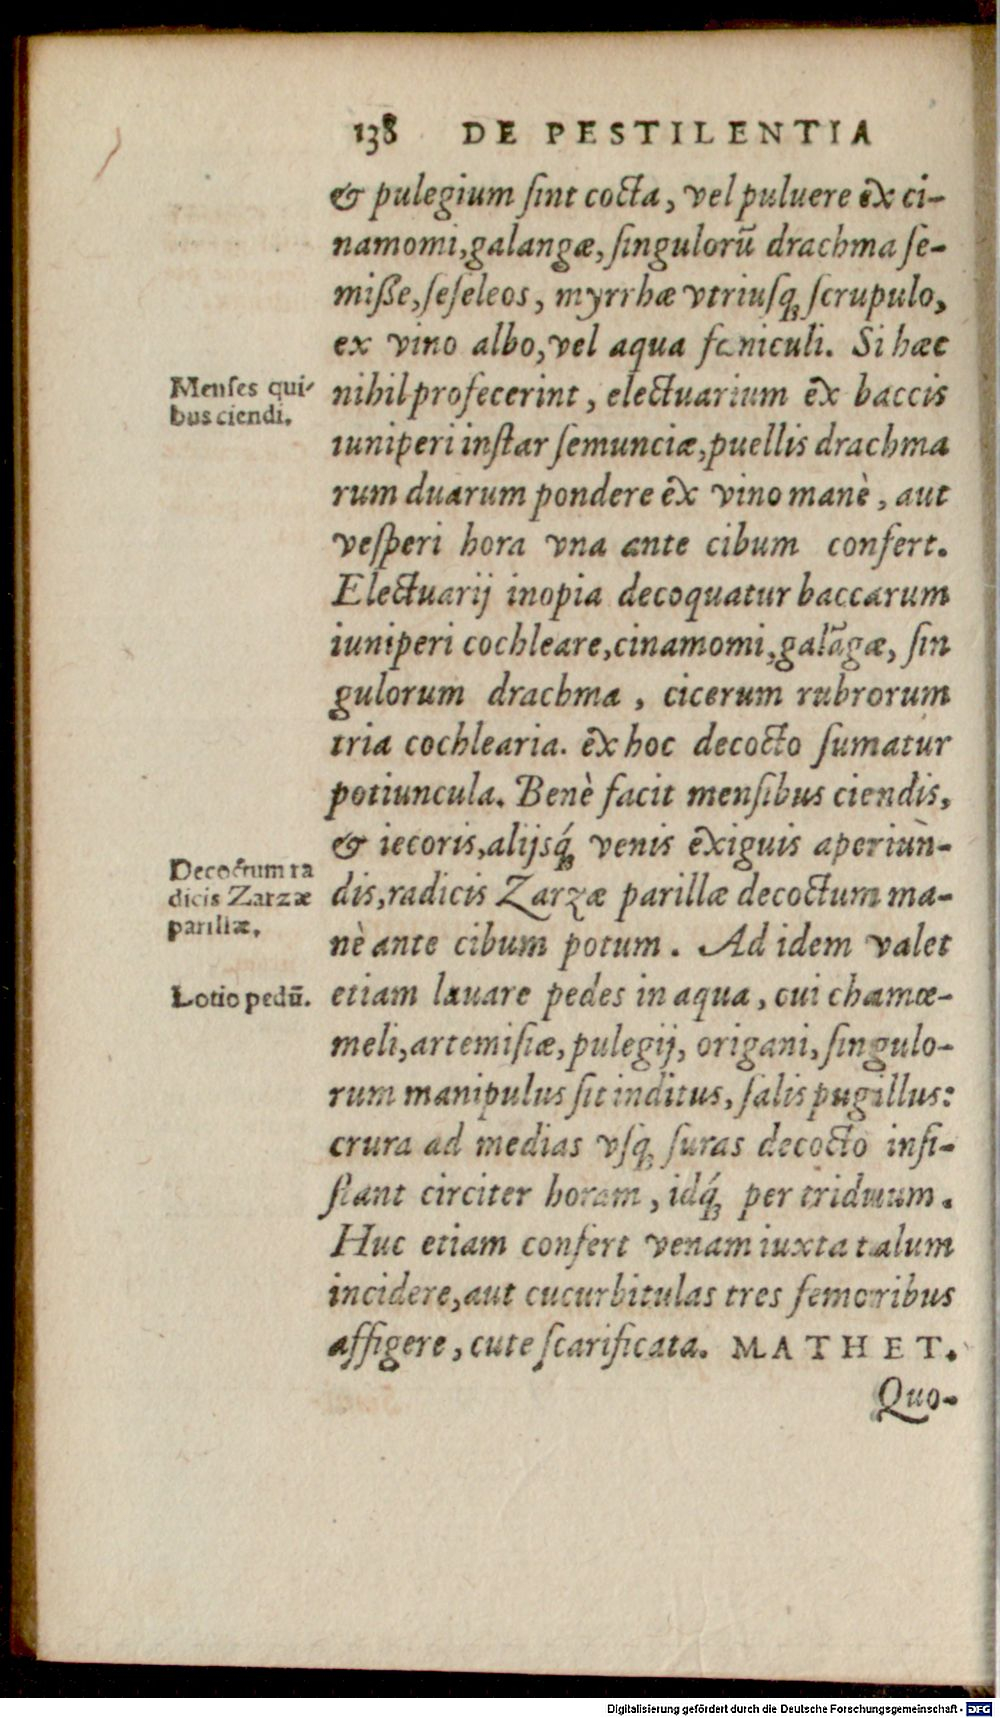 138 DE PESTILENTIA
& pulegium ſint cocta, vel puluere ẽx ci-
namomi, galangæ, ſingulorũ drachma ſe-
miſſe, ſeſeleos, myrrhæ vtriuſq; ſcrupulo,
ex vino albo, vel aqua fœniculi. Si hæc
Menſes qui-
bus ciendi.
nihil profecerint, electuarium ẽx baccis
iuniperi inſtar ſemunciæ, puellis drachma
rum duarum pondere ẽx vino manè, aut
veſperi hora vna ante cibum confert.
Electuarij inopia decoquatur baccarum
iuniperi cochleare, cinamomi, galãgæ, ſin
gulorum drachma, cicerum rubrorum
tria cochlearia. ẽx hoc decocto ſumatur
potiuncula. Benè facit menſibus ciendis,
& iecoris, alijsq́; venis ẽxiguis aperiun-
Decoctum ra
dicis Zarzæ
parillæ.
dis, radicis Zarzæ parillæ decoctum ma-
nè ante cibum potum. Ad idem valet
Lotio pedũ.
etiam lauare pedes in aqua, cui chamæ-
meli, artemiſiæ, pulegij, origani, ſingulo-
rum manipulus ſit inditus, ſalis pugillus:
crura ad medias vſq; ſuras decocto inſi-
ſtant circiter horam, idq́; per triduum.
Huc etiam confert venam iuxta talum
incidere, aut cucurbitulas tres femoribus
affigere, cute ſcarificata. MATHET.
Quo-
Digitalisierung gefördert durch die Deutsche Forschungsgemeinschaft - DFG